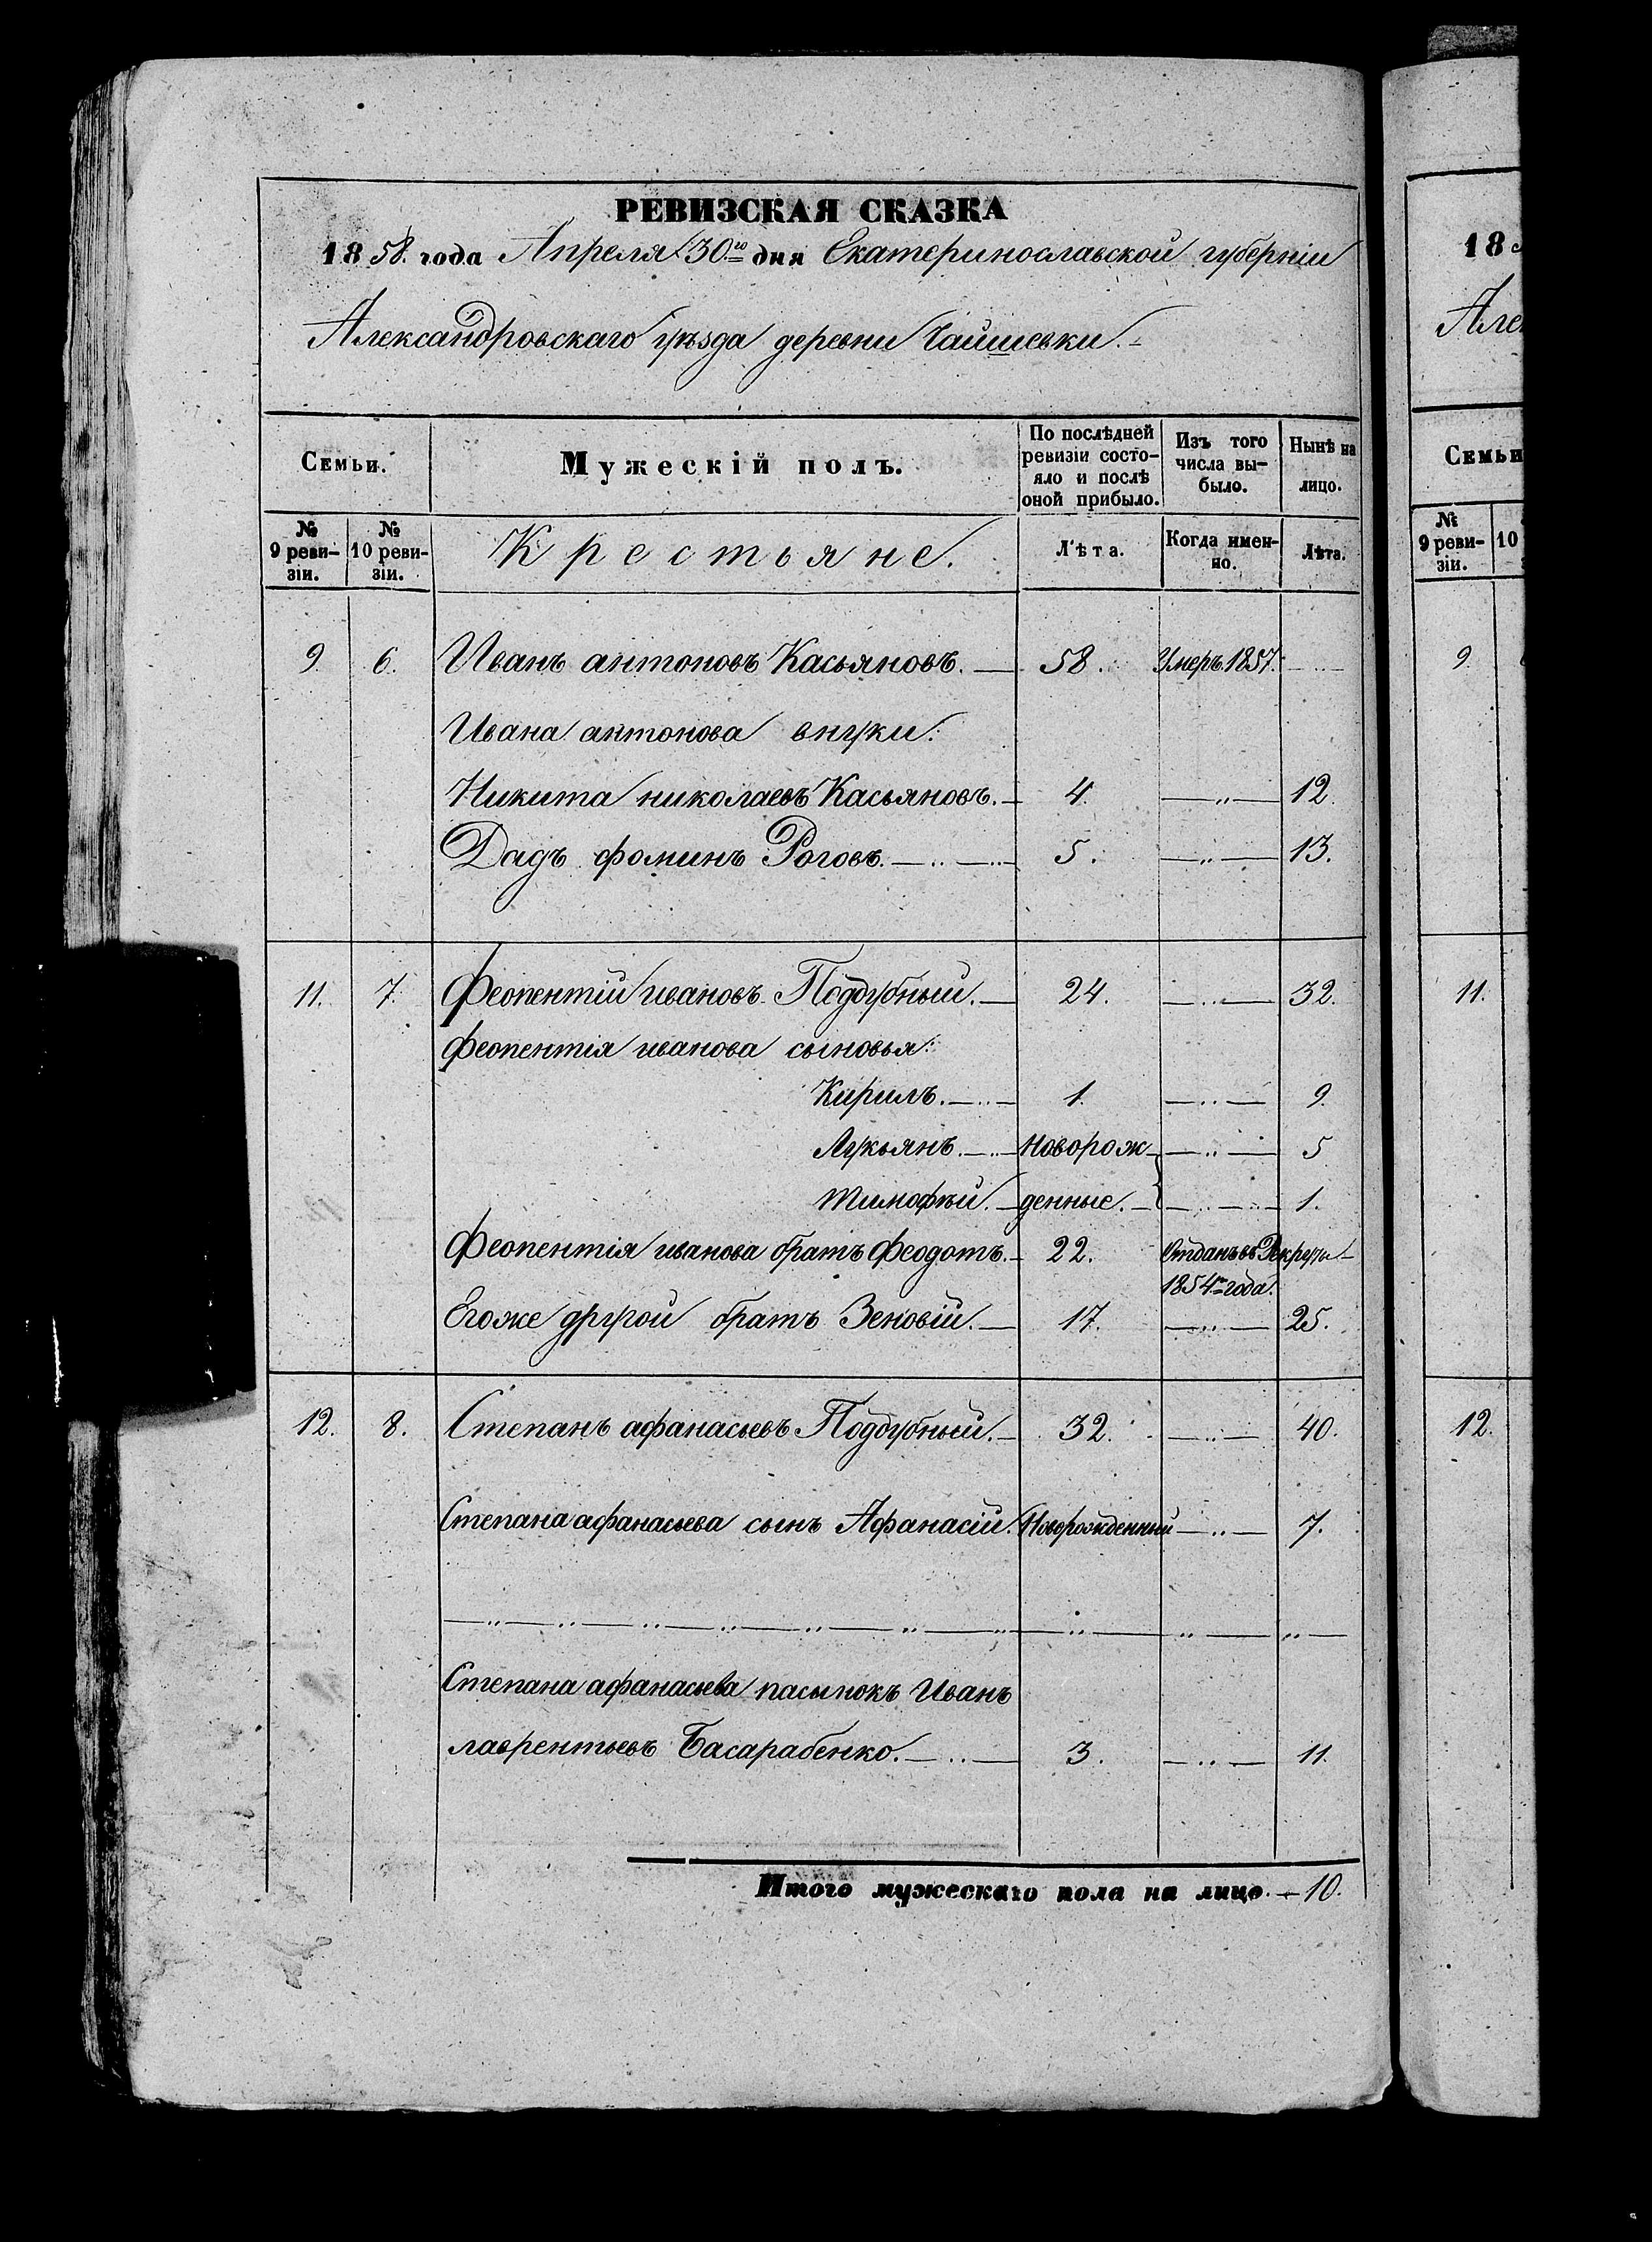 РЕВИЗСКАЯ СКАЗКА
1858. года Апреля 30го дня Екатеринославской губерніи
Александровскаго уѣзда деревни
Семьи. Мужескій полъ. По послѣдней ревизіи состояло и послѣ оной прибыло. Изъ того числа выбыло. Нынѣ на лицо.
№ 9 ревизіи. № 10 ревизіи. Крестьяне. Лѣта. Когда именно. Лѣта.
9. 6. Иванъ антоновъ Касьяновъ. — 58. Умеръ 1857. —
Ивана антонова внуки:
Никита николаевъ Касьяновъ. — 4. —„— 12.
Дадъ фоминъ Роговъ. —„—„— 5. —„— 13.
11. 7. Феопентій ивановъ Поддубный. — 24. —„— 32.
Феопентія иванова сыновья:
Кирилъ. —„— 1. —„— 9.
Лукьянъ. —„— Новорож- —„— 5
Тимофѣй. — денные. — —„— 1.
Феопентія иванова братъ Феодотъ. — 22. Отданъ въ Рекруты —
1854го года.
Егоже другой братъ Зеновій. — 17. —„— 25.
12. 8. Степанъ афанасьевъ Поддубный. — 32. —„— 40.
Степана афанасьева сынъ Афанасій. Новорожденный —„— 7.
—„—„—„—„—„—„—„—„—„—„—
Степана афанасьева пасынокъ Иванъ
лаврентьевъ Басарабенко. —„— 3. —„— 11.
Итого мужескаго пола на лицо. — 10.
18
Але
Семьи
№ 9 ревизіи. 10
9.
11.
12.